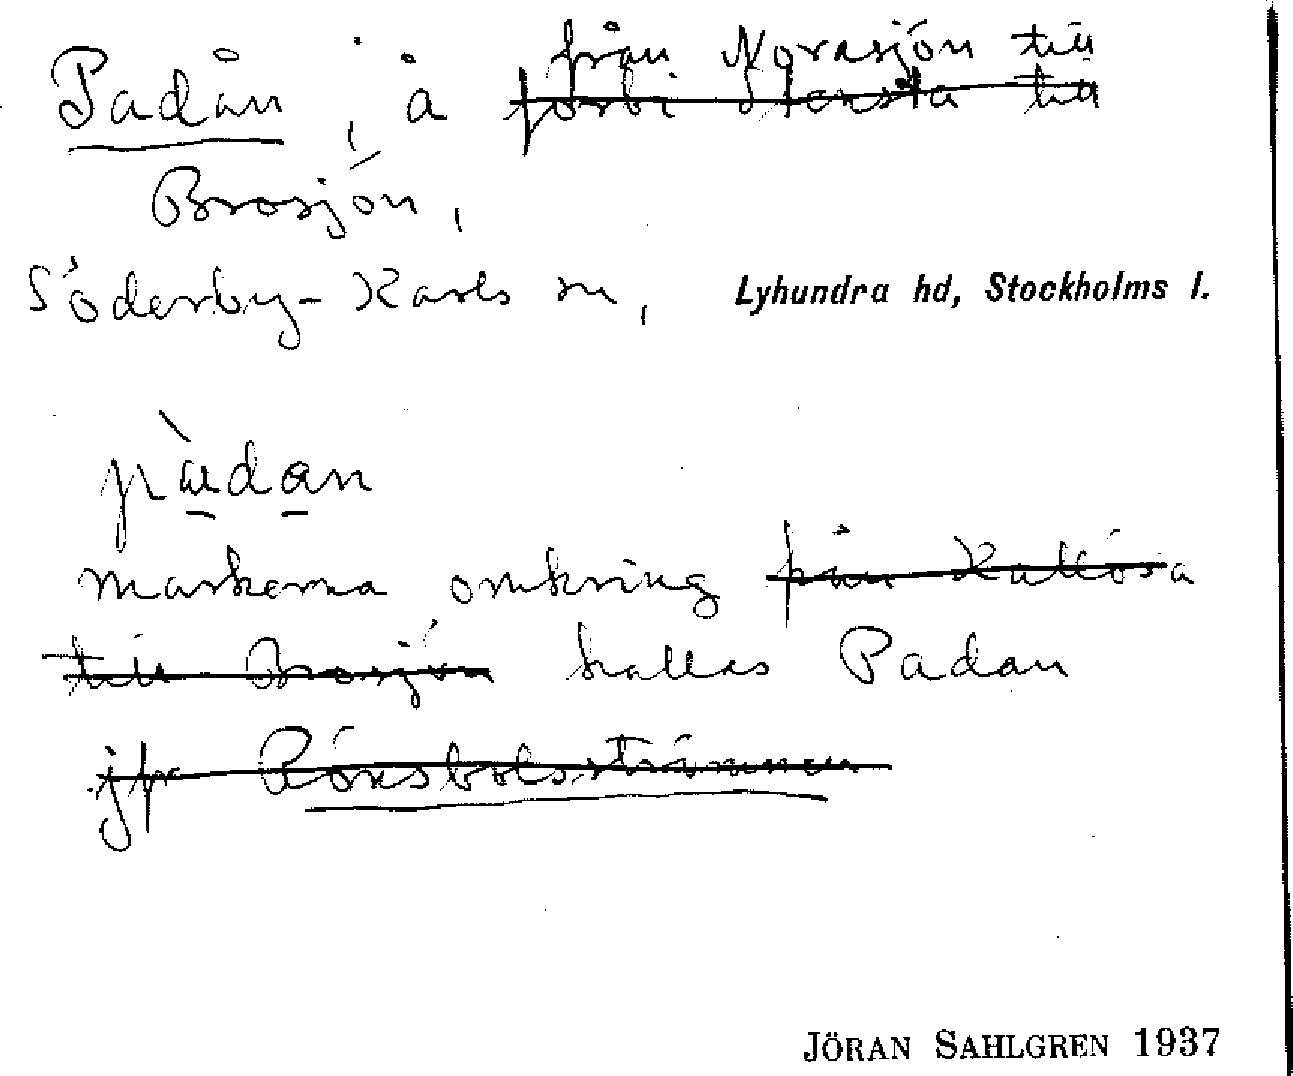 från Norasjön till
Padån, å förbi Spersta till
Brosjön,
Söderby-Karls sn, Lyhundra hd, Stockholms l.
pàdan
markerna omkring från Kallösa
till Brosjön kallas Padan
jfr Rönsbolsströmmen
JÖRAN SAHLGREN 1937